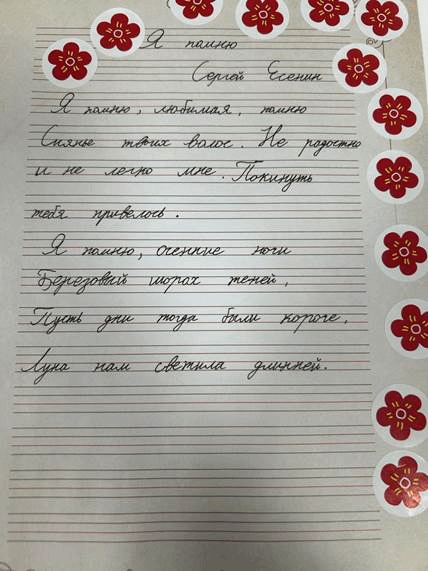 Я помню
Сергей Есенин
Я помню, любимая, помню
Сиянье твоих волос. Не радостно
и не легко мне. Покинуть
тебя привелось.
Я помню, осенние ночи
Березовый шорох теней,
Пусть дни тогда были короче,
Луна нам светила длинней.